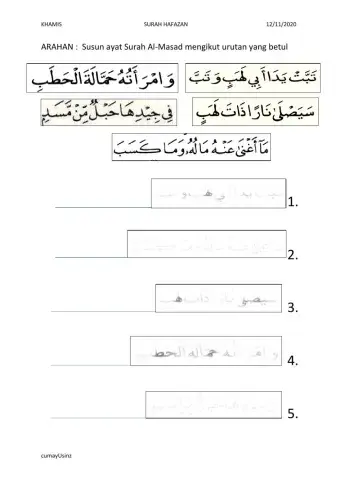 KHAMIS SURAH HAFAZAN 12/11/2020
ARAHAN : Susun ayat Surah Al-Masad mengikut urutan yang betul
تَبَّتْ يَدَا أَبِي لَهَبٍ وَتَبَّ وَامْرَأَتُهُ حَمَّالَةَ الْحَطَبِ
سَيَصْلَىٰ نَارًا ذَاتَ لَهَبٍ فِي جِيدِهَا حَبْلٌ مِّن مَّسَدٍ
مَا أَغْنَىٰ عَنْهُ مَالُهُ وَمَا كَسَبَ
1.
2.
3.
4.
5.
cumayUsinz